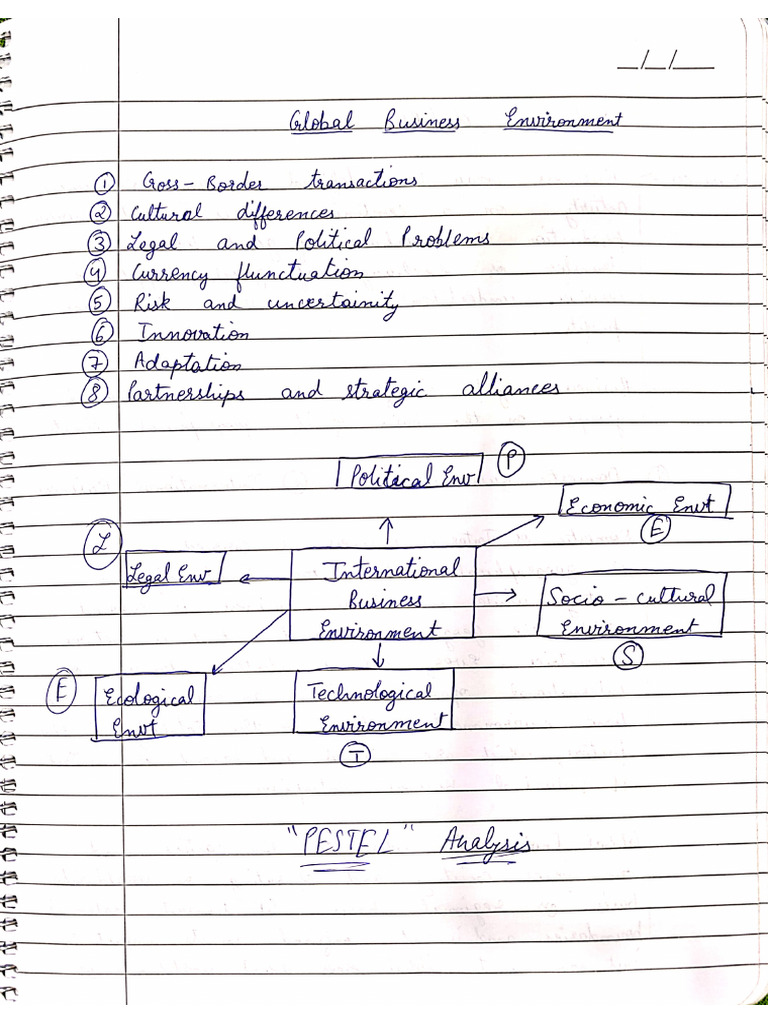 _/_/__
Global Business Environment
① Cross-Border transactions
② Cultural differences
③ Legal and Political Problems
④ Currency flunctuation
⑤ Risk and uncertainity
⑥ Innovation
⑦ Adaptation
⑧ Partnerships and strategic alliances
Political Env
P
Economic Envt
E
L
Legal Env
International
Business
Environment
Socio-cultural
Environment
S
E
Ecological
Envt
Technological
Environment
T
"PESTEL" Analysis